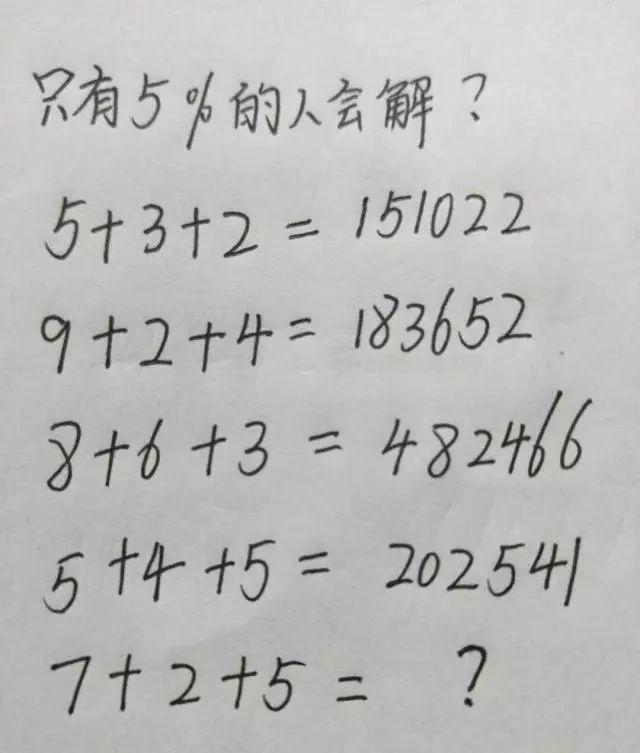 只有5%的人会解?
5+3+2=151022
9+2+4=183652
8+6+3=482466
5+4+5=202541
7+2+5=?